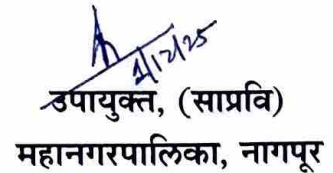 2/12/25
उपायुक्त, (साप्रवि)
महानगरपालिका, नागपूर